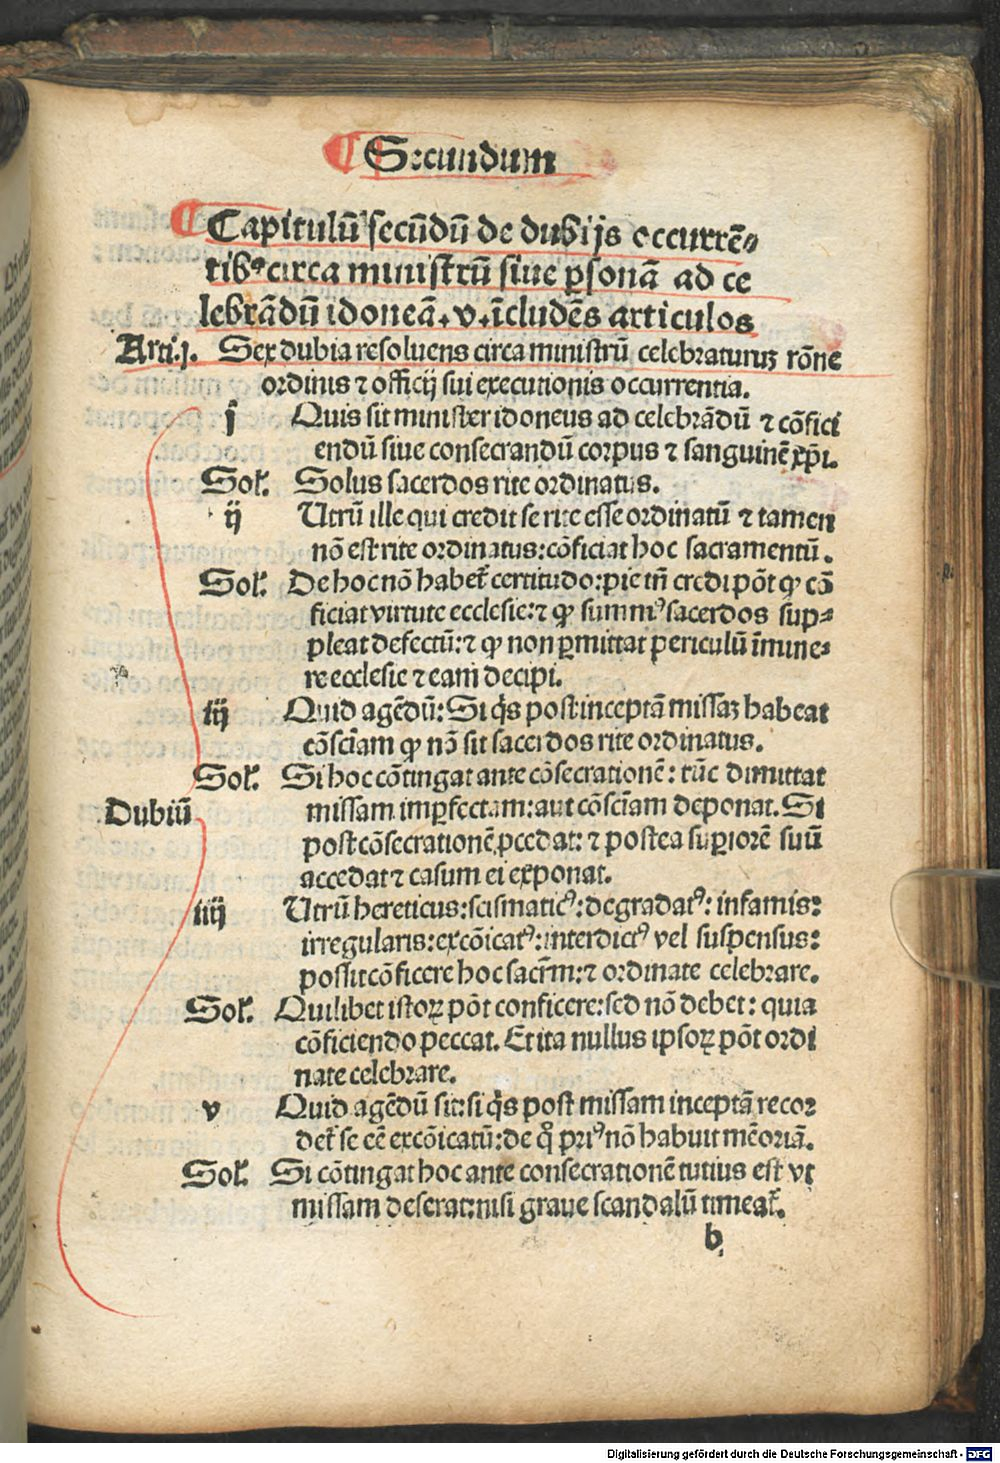 ¶ Secundum
¶ Capitulū secūdū de dubijs occurrē⸗
tibꝰ circa ministrū siue ꝑsonā ad ce
lebrādū idoneā. v. īcludēs articulos
Arti. j. Sex dubia resoluens circa ministrū celebraturuꝫ rōne
ordinis ⁊ officij sui executionis occurrentia.
j Quis sit minister idoneus ad celebrādū ⁊ cōfici
endū siue consecrandū corpus ⁊ sanguinē xp̄i.
Sol'. Solus sacerdos rite ordinatus.
ij Utrū ille qui credit se rite esse ordinatū ⁊ tamen
nō est rite ordinatus: cōficiat hoc sacramentū.
Sol'. De hoc nō habet' certitudo: pie tn̄ credi pōt ꝙ cō
ficiat virtute ecclesie: ⁊ ꝙ summꝰ sacerdos sup⸗
pleat defectū: ⁊ ꝙ non ꝑmittat periculū īmine⸗
re ecclesie ⁊ eam decipi.
iij Quid agēdū: Si q̄s post inceptā missaꝫ habeat
cōsciam ꝙ nō sit sacerdos rite ordinatus.
Sol'. Si hoc cōtingat ante cōsecrationē: tūc dimittat
Dubiū missam imꝑfectam: aut cōsciam deponat. Si
post cōsecrationē ꝓcedat: ⁊ postea suꝑiorē suū
accedat ⁊ casum ei exponat.
iiij Utrū hereticus: scismaticꝰ: degradatꝰ: infamis:
irregularis: excōicatꝰ: interdictꝰ vel suspensus:
possit cōficere hoc sacrm̄: ⁊ ordinate celebrare.
Sol'. Quilibet istoꝝ pōt conficere: sed nō debet: quia
cōficiendo peccat. Et ita nullus ipsoꝝ pōt ordi
nate celebrare.
v Quid agēdū sit: si q̄s post missam inceptā recor
det' se eē excōicatū: de qͣ priꝰ nō habuit mēoriā.
Sol'. Si cōtingat hoc ante consecrationē tutius est vt
missam deserat: nisi graue scandalū timeat'.
b
Digitalisierung gefördert durch die Deutsche Forschungsgemeinschaft - DFG